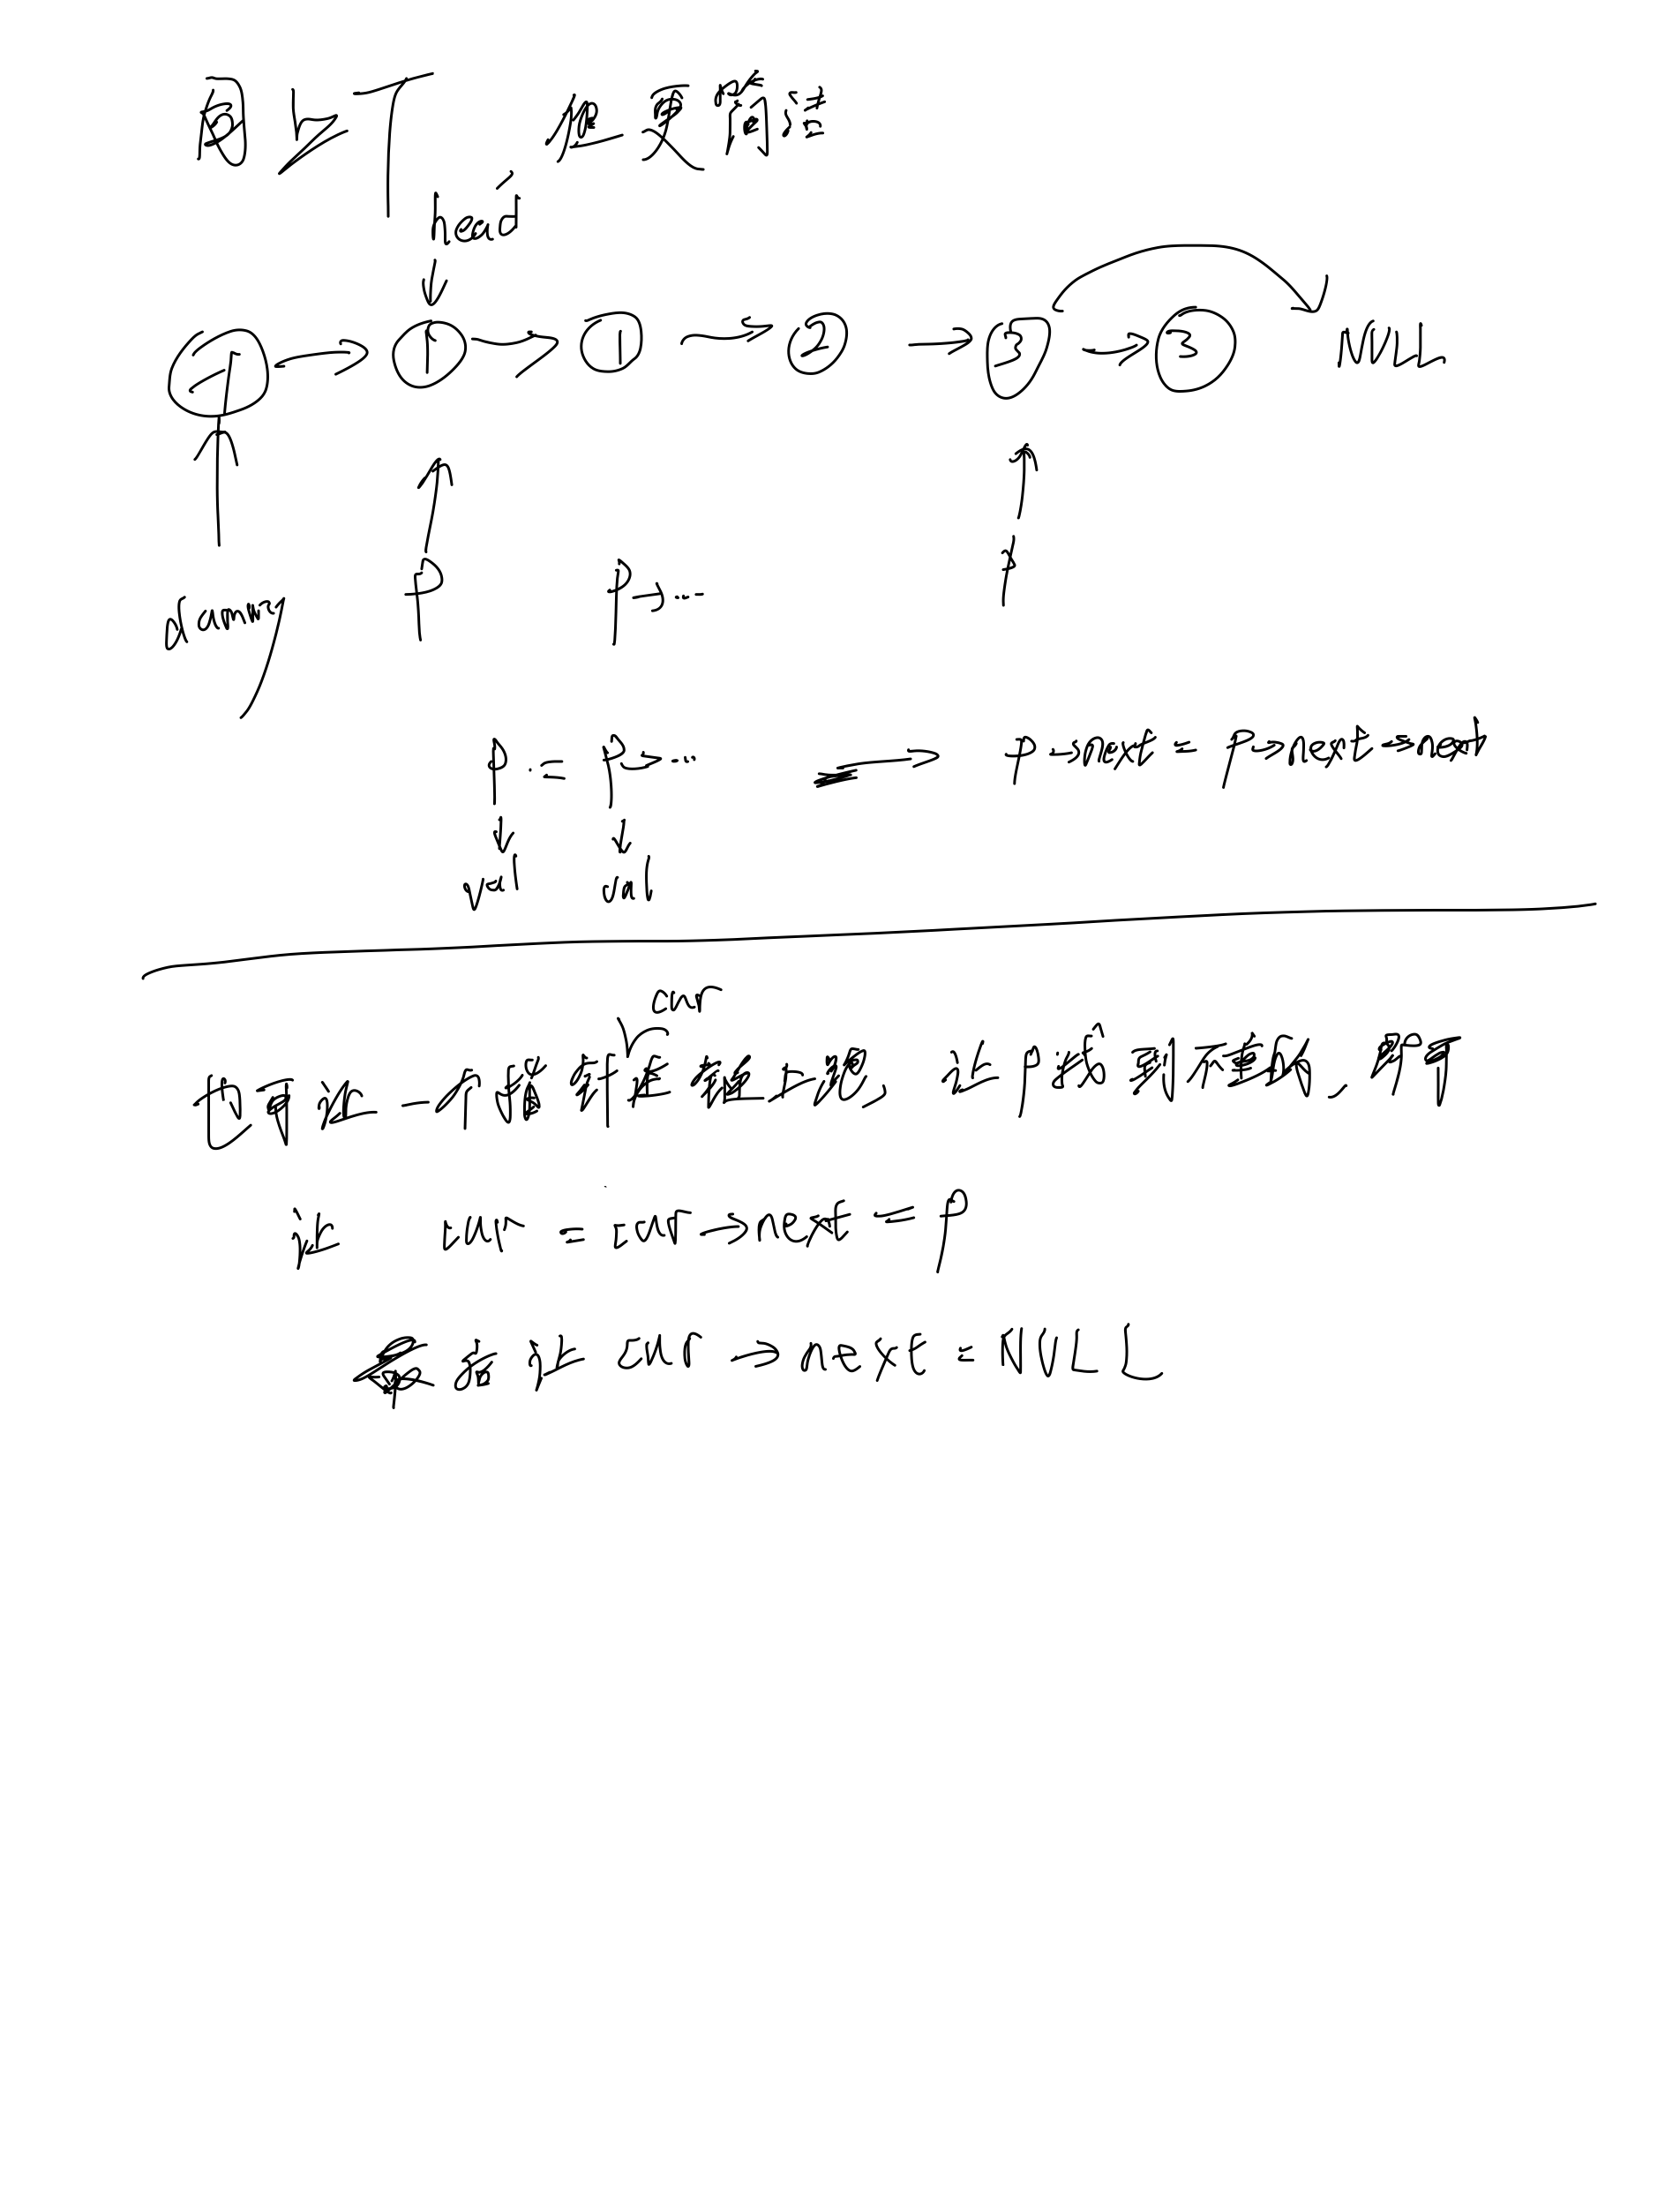 同上T 但更简洁
head
-1 → 1 → 1 → 2 → 3 → 3 NULL
p p→... p
dummy
p . = p→... → p→next = p→next→next
val val
cur
也可让一个指针在前面跑, 让p找到不重的, 即可
让 cur = cur→next = p
最后让 cur → next = NULL